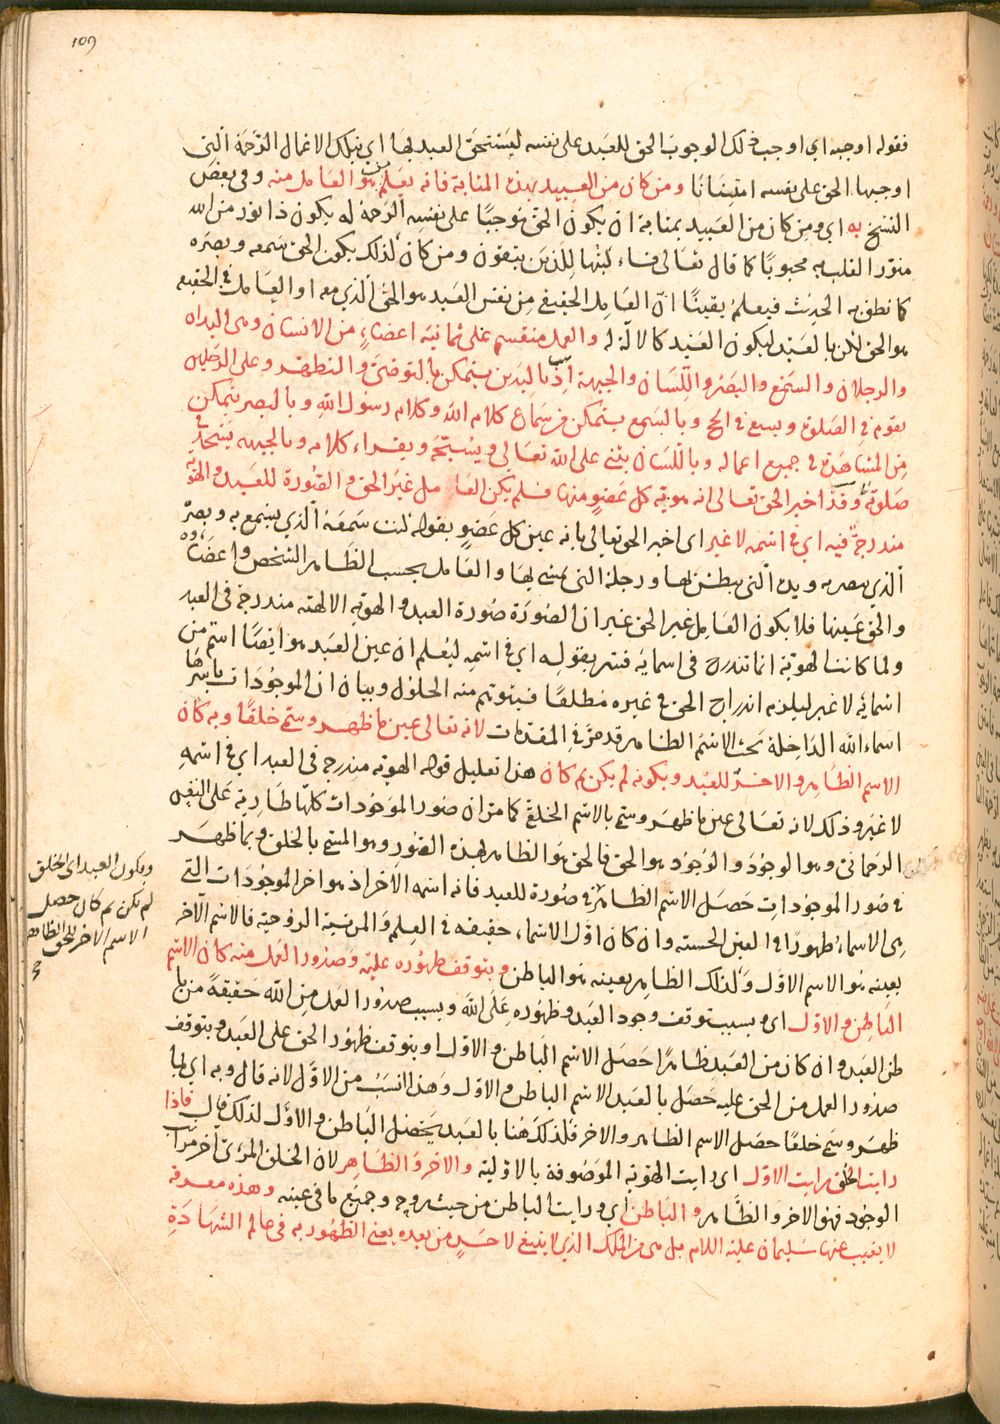 109
فقوله اوجبه اي اوجب ذلك الوجوب الحق للعبد على نفسه ليستحق العبد بها اي بتلك الاعمال الرحمة التي
اوجبها الحق على نفسه امتنانا ومن كان من العبيد بهذه المثابة فانه يعلم من هو العامل منه وفي بعض
النسخ به اي ومن كان من العبيد بمثابة ان يكون الحق موجبا على نفسه الرحمة له يكون ذا نور من الله
منور القلب به محبوبا كما قال تعالى فساكتبها للذين يتقون ومن كان كذلك يكون الحق سمعه وبصره
كما نطق به الحديث فيعلم يقينا ان العامل الحقيقي من نفس العبد هو الحق الذي معه او العامل في الحقيقه
هو الحق لكن بالعبد ليكون العبد كالآلة له والعمل منقسم على ثمانية اعضاء من الانسان وهى اليدان
والرجلان والسمع والبصر واللسان والجبهة اذ باليدين يتمكن بالتوضئ والتطهر وعلى الرجلين
يقوم في الصلوة ويسعى في الحج وبالسمع يتمكن من سماع كلام الله وكلام رسول الله وبالبصر يتمكن
من المشاهدة في جميع اعماله وباللسان يثنى على الله تعالى ويسبحه ويقراء كلامه وبالجبهه يسجد في
صلوته وقد اخبر الحق تعالى انه هوية كل عضو منها فلم يكن العامل غير الحق والصورة للعبد والهوية
مندرجة فيه اي في اسمه لا غير اى اخبر الحق تعالى بانه عين كل عضو بقوله كنت سمعه الذي يسمع به وبصره
الذي يبصر به ويده التى يبطش بها ورجله التى يمشى بها والعامل بحسب الظاهر الشخص واعضاؤه
والحق عينها فلا يكون العامل غير الحق غير ان الصورة صورة العبد والهوية الالهيه مندرجة في العبد
ولما كانت الهوية انما تندرج في اسمائه فسر بقوله اي في اسمه ليعلم ان عين العبد هو ايضا اسم من
اسمائه لا غير ليلزم اندراج الحق في غيره مطلقا فيتوهم منه الحلول وبيان ان الموجودات باسرها
اسماء الله الداخلة تحت الاسم الظاهر قد مر في المقدمات لانه تعالى عين ما ظهر وسمي خلقا وبه كان
الاسم الظاهر والاخر للعبد وبكونه لم يكن ثم كان هذا تعليل قوله الهوية مندرجه في العبد اي في اسمه
لا غير وذلك لانه تعالى عين ما ظهر وسمي بالاسم الخلقي كما مر ان صور الموجودات كلها طارية على النفس
الرحماني وهو الوجود والوجود هو الحق فالحق هو الظاهر بهذه الصور وهو المسمى بالخلق وبما ظهر
في صور الموجودات حصل الاسم الظاهر في صورة للعبد فانه اسمه الاخر اذ هو اخر الموجودات التى
هى الاسماء ظهورا في العين الحسيه وان كان اول الاسماء حقيقه في العلم والمرتبة الروحية فالاسم الاخر
بعينه هو الاسم الاول وكذلك الظاهر بعينه هو الباطن وبتوقف ظهوره عليه وصدور العمل منه كان الاسم
الباطن والاول اى وبسبب توقف وجود العبد وظهوره على الله وبسبب صدور العمل من الله حقيقة من با
طن العبد وان كان من العبد ظاهرا حصل الاسم الباطن والاول او بتوقف ظهور الحق على العبد وبتوقف
صدور العمل من الحق عليه حصل بالعبد الاسم الباطن والاول وهذا انسب من الاول لانه قال وبه اي بما
ظهر وسمي خلقا حصل الاسم الظاهر والاخر فلذلك هنا بالعبد يحصل الباطن والاول لذلك قال فاذا
رايت الخلق رايت الاول اى رايت الهوية الموصوفة بالاولية والاخر والظاهر لان الخلق المرئى اخر مراتب
الوجود فهو الاخر والظاهر والباطن اي ورايت الباطن من حيث روحه وجميع ما في عينه وهذه معرفه
لا يغيب عنها سليمان عليه السلام بل هى من الملك الذي لا ينبغي لاحد من بعده يعنى الظهور به في عالم الشهادة
ويكون العبد اى الخلق
لم يكن ثم كان حصل
الاسم الاخر للحق والظاهر